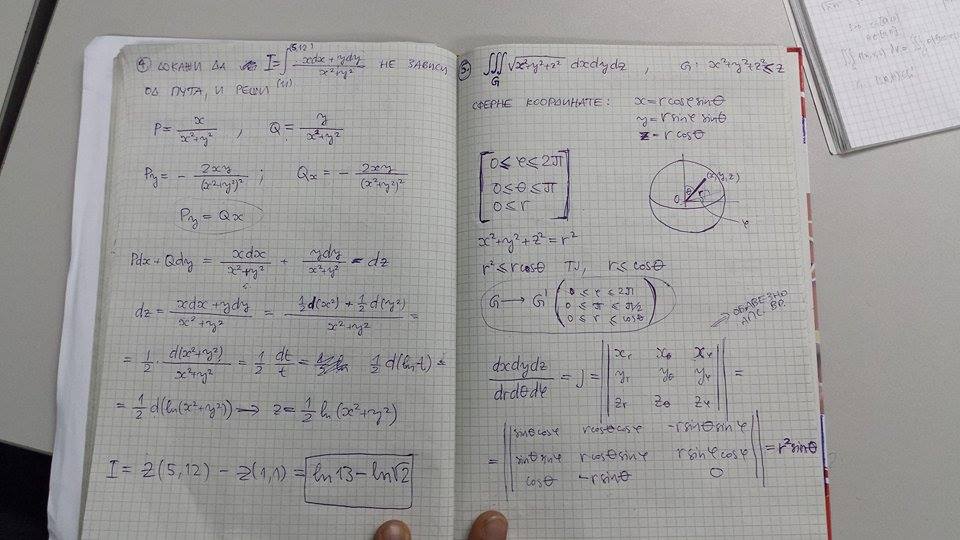 ④ ДОКАЖИ ДА I = ∫_(1,1)^(5,12) (xdx + ydy)/(x²+y²) НЕ ЗАВИСИ
ОД ПУТА, И РЕШИ
P = x/(x²+y²) , Q = y/(x²+y²)
Py = - 2xy/(x²+y²)² ; Qx = - 2xy/(x²+y²)²
Py = Qx
Pdx + Qdy = xdx/(x²+y²) + ydy/(x²+y²) = dz
dz = (xdx + ydy)/(x²+y²) = (½d(x²) + ½d(y²))/(x²+y²) =
= ½ · d(x²+y²)/(x²+y²) = ½ dt/t = ½ d(ln t) =
= ½ d(ln(x²+y²)) → z = ½ ln(x²+y²)
I = z(5,12) - z(1,1) = ln13 - ln√2
5. ∭_G √(x²+y²+z²) dxdydz , G: x²+y²+z² ≤ z
СФЕРНЕ КООРДИНАТЕ: x = r cosφ sinθ
y = r sinφ sinθ
z = r cosθ
0 ≤ φ ≤ 2π
0 ≤ θ ≤ π
0 ≤ r
(x,y,z)
θ
r
0
φ
x²+y²+z² = r²
r² ≤ r cosθ ТЈ, r ≤ cosθ
G → G' 0 ≤ φ ≤ 2π
0 ≤ π ≤ π/2
0 ≤ r ≤ cosθ
ОБАВЕЗНО
АПС. ВР.
dxdydz/drdθdφ = J = || xr xθ xφ
yr yθ yφ
zr zθ zφ || =
= || sinθcosφ rcosθcosφ -rsinθsinφ
sinθsinφ rcosθsinφ rsinθcosφ
cosθ -rsinθ 0 || = r²sinθ